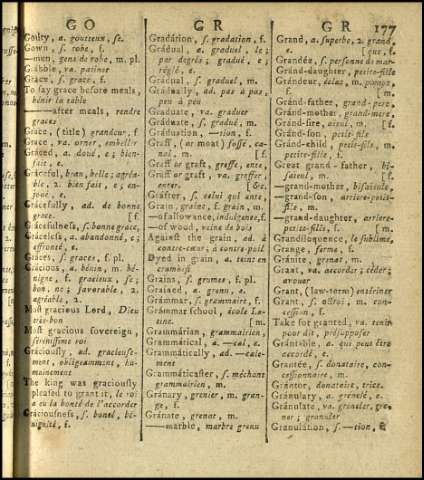 GO
GR
GR 177
Goûty, a. goutteux, se.
Gown, s. robe, f.
—men, gens de robe, m. pl.
Gabble, va. patiner
Grace, s. grace, f.
To say grace before meals,
bénir la table
——after meals, rendre
graces
Grace, (title) grandeur, f
Grace, va. orner, embellir
Graced, a. doué, e; bien-
fait, e.
Graceful, bien, belle; agréa-
ble, 2. bien fait, e; en-
joué, e.
Gracefully, ad. de bonne
grace. [f.
Gracefulness, s. bonne grace,
Graceless, a. abandonné, e;
effronté, e.
Graces, s. graces, f. pl.
Gracious, a. bénin, m. bé-
nigne, f. gracieux, se;
bon, ne; favorable, 2.
agréable, 2.
Most gracious Lord, Dieu
très-bon
Most gracious sovereign,
sérénissime roi
Graciously, ad. gracieuse-
ment, obligeamment, hu-
mainement
The king was graciously
pleased to grant it, le roi
a eu la bonté de l'accorder
Graciousness, s. bonté, bé-
nignité, f.
Gradation, s. gradation, f.
Gradual, a. graduel, le;
par degrés; gradué, e;
réglé, e.
Gradual, s. graduel, m.
Gradually, ad. pas à pas,
peu à peu
Graduate, va. graduer
Graduate, s. gradué, m.
Graduation, —tion, f.
Graff, (or moat) fossé, ca-
nal, m. [f.
Graff or graft, greffe, ente,
Graff or graft, va. greffer,
enter. [&c.
Grafter, s. celui qui ente,
Grain, grain, f. grain, m.
—of allowance, indulgence, f.
—of wood, veine de bois
Against the grain, ad. à
contre-cœur, à contre-poil
Dyed in grain, a. teint en
cramoisi
Grains, s. grames, f. pl.
Grained, grenu, e.
Grammar, s. grammaire, f.
Grammar school, école La-
tine. [m.
Grammarian, grammairien,
Grammatical, a. —cal, e.
Grammatically, ad. —cale-
ment
Grammaticaster, s. méchant
grammairien, m.
Granary, grenier, m. gran-
ge, f.
Granate, grenat, m.
—marble, marbre granu
Grand, a. superbe, 2. grand,
e. [que, f.
Grandée, s. personne de mar-
Grand-daughter, petite-fille
Grandeur, éclat, m. pompe,
f. [m.
Grand-father, grand-pere,
Grand-mother, grand-mere,
Grand-sire, aïeul, m. [f.
Grand-son, petit-fils
Grand-child, petit-fils, m.
petite-fille, f.
Great grand-father, bi-
saïeul, m. [f.
—grand-mother, bisaïeule,
—grand-son, arriere-petit-
fils, m.
—grand-daughter, arriere-
petite-fille, f. [m.
Grandiloquence, le sublime,
Grange, ferme, f.
Granite, grenat, m.
Grant, va. accorder; céder;
avouer
Grant, (law-term) enteriner
Grant, s. octroi; m. con-
cession, f.
Take for granted, va. tenir
pour dit, présupposer
Grantable, a. qui peut être
accordé, e.
Grantée, s. donataire, con-
cessionnaire, m.
Grantor, donataire, trice.
Granulary, a. grenelé, e.
Granulate, va. greneler, gre-
ner; granuler
Granulation, s. —tion, f.